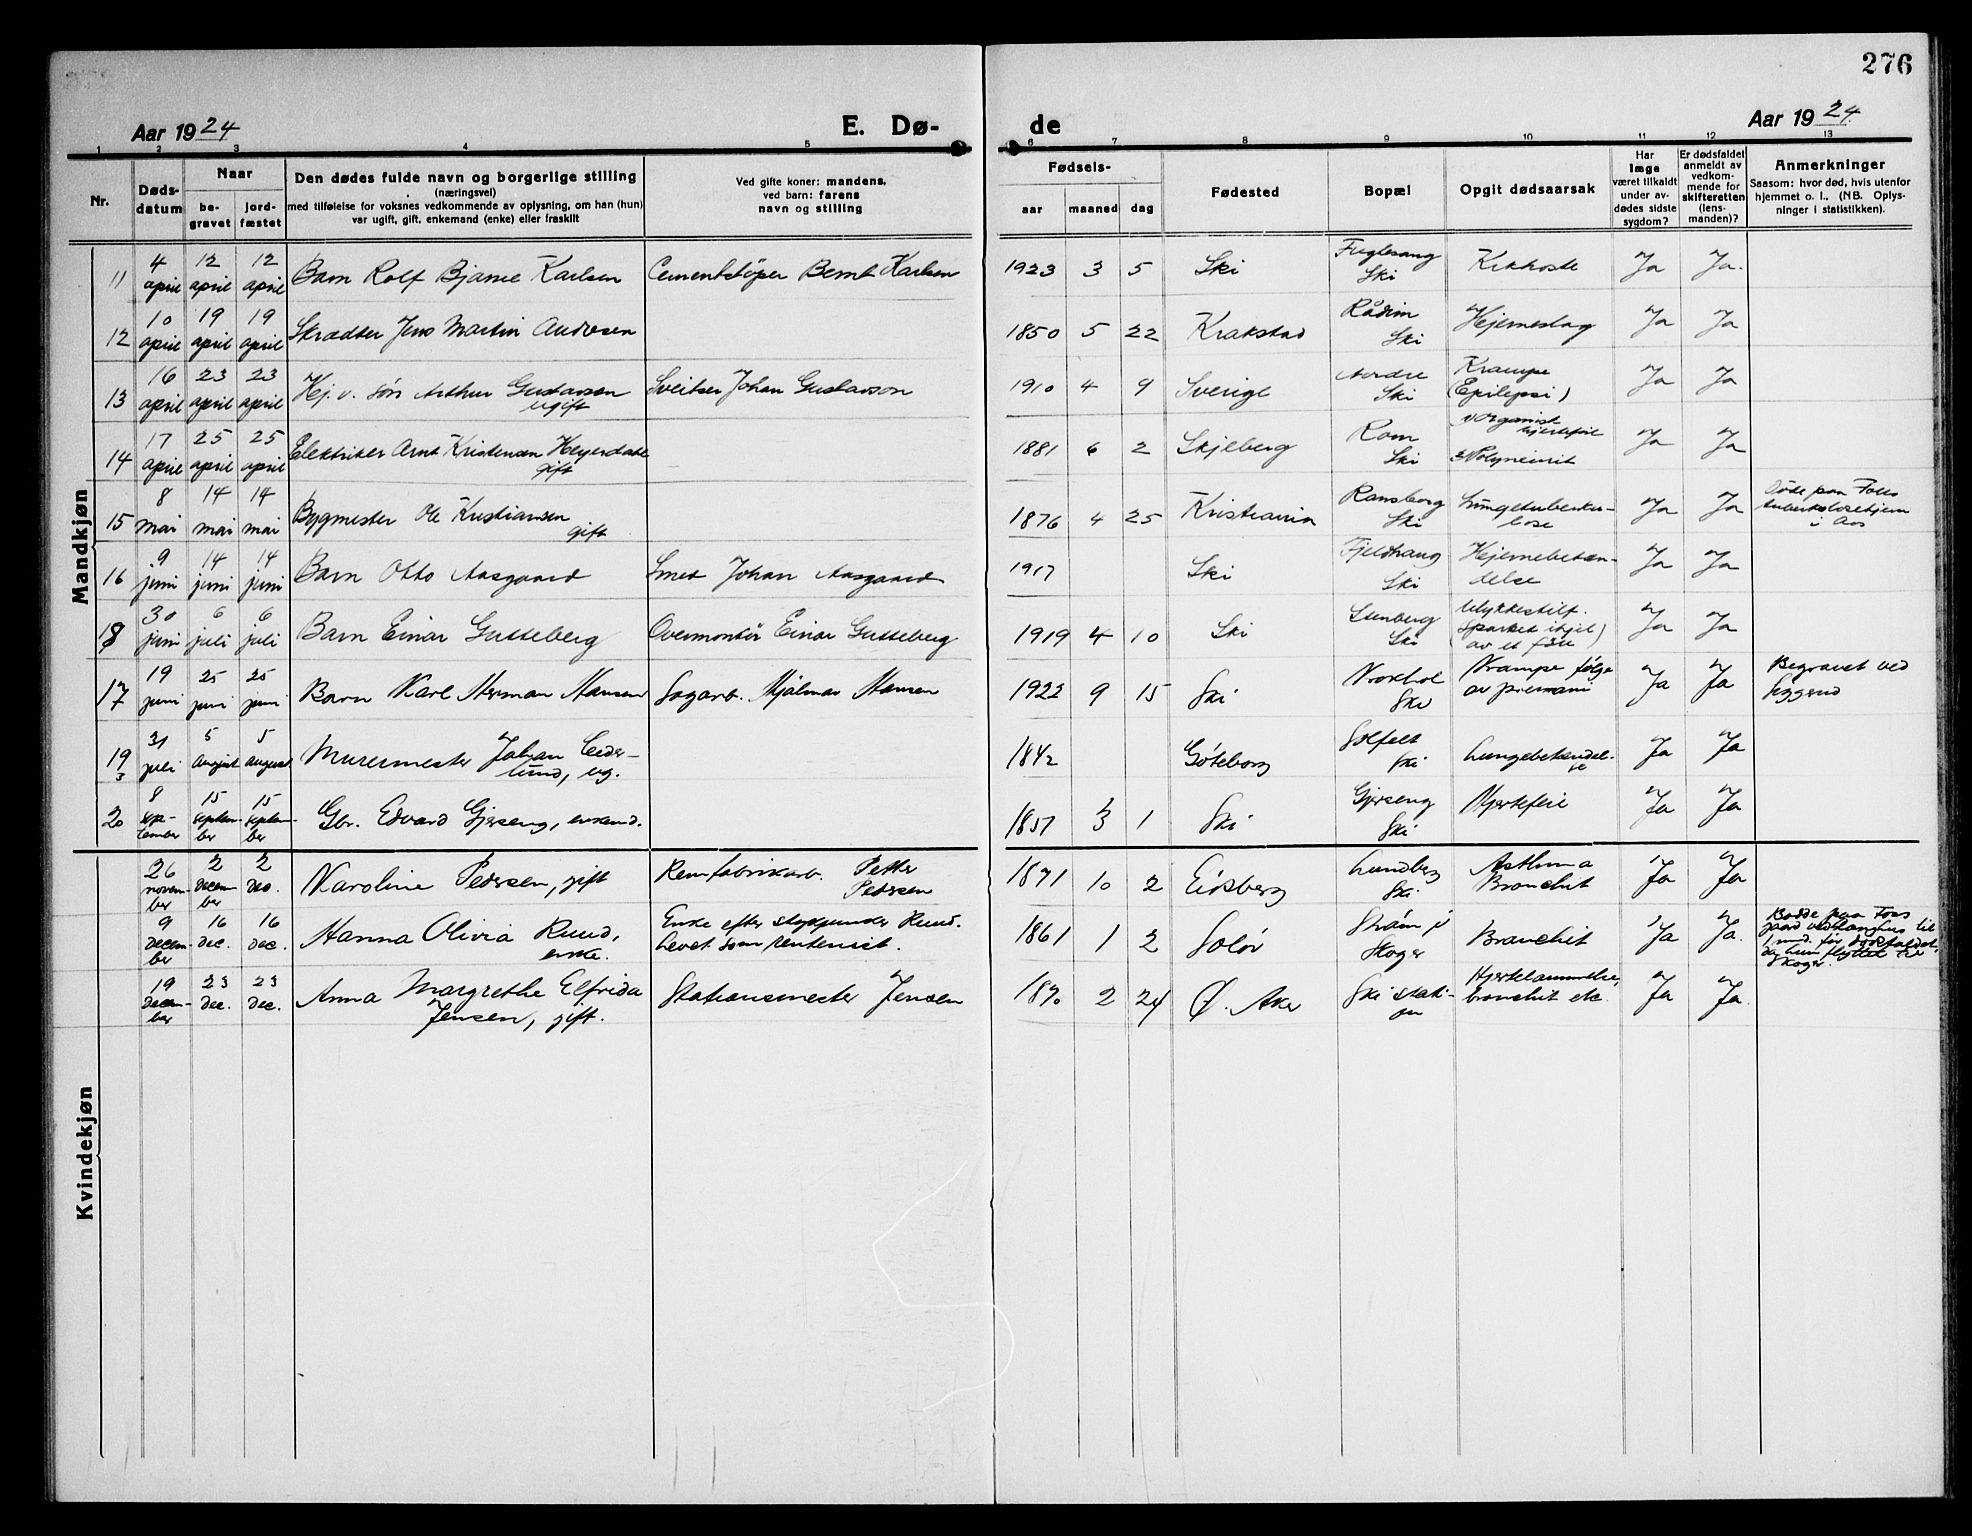 276
Aar 1924
E. Dø-
de
Aar 1924
1 2 3 4 5 6 7 8 9 10 11 12 13
Nr.
Døds-
datum
Naar
be-
gravet
jord-
fæstet
Den dødes fulde navn og borgerlige stilling
(næringsvei)
med tilføielse for voksnes vedkommende av oplysning, om han (hun)
var ugift, gift, enkemand (enke) eller fraskilt
Ved gifte koner: mandens,
ved barn: farens
navn og stilling
Fødsels-
aar maaned dag
Fødested
Bopæl
Opgit dødsaarsak
Har
læge
været tilkaldt
under av-
dødes sidste
sygdom?
Er dødsfaldet
anmeldt av
vedkom-
mende for
skifteretten
(lens-
manden)?
Anmerkninger
Saasom: hvor død, hvis utenfor
hjemmet o. l., (NB. Oplys-
ninger i statistikken).
Mandkjøn
11 4 april 12 april 12 april Barn Rolf Bjarne Karlsen Cementstøper Bernt Karlsen 1923 3 5 Ski Fuglesang Ski Kikhoste Ja Ja.
12 10 april 19 april 19 april Skrædder Jens Martin Andresen 1850 5 22 Krakstad Ski Hjerneslag Ja Ja
13 16 april 23 april 23 april Hj. v. søn Arthur Gustavsen ugift Sveitser Johan Gustavson 1910 4 9 Sverige Nordre Ski Krampe (Epilepsi) Ja Ja
14 17 april 25 april 25 april Elektriker Arnt Kristensen Heyerdahl gift 1881 6 2 Skjeberg Rom Ski 1) Organisk hjertefeil 2) Polyneurit Ja Ja
15 8 mai 14 mai 14 mai Bygmester Ole Kristiansen gift 1876 4 25 Kristiania Ransborg Ski Lungetuberku- lose Ja Ja Døde paa Follo tuberkulosehjem i Aas
16 9 juni 14 juni 14 juni Barn Otto Aasgaard Smed Johan Aasgaard 1917 Ski Fjeldhaug Ski Hjernebeten- delse Ja Ja
18 30 juni 6 juli 6 juli Barn Einar Gutteberg Overmontør Einar Gutteberg 1919 4 10 Ski Stenberg Ski Ulykkestilf. (Sparket ihjel av et føll) Ja Ja
17 19 juni 25 juni 25 juni Barn Karl Herman Hansen Sagarb. Hjalmar Hansen 1922 9 15 Ski Ski Krampe følge av Ja Ja Begravet ved
19 31 juli 5 August 5 august Murermester Johan Ceder- lund, ug. 1842 Göteborg Solfelt Ski Lungebetændel- se Ja Ja
20 8 sep- tember 15 septem- ber 15 septem- ber Gbr. Edvard Gjerseng, enkem. 1857 3 1 Ski Gjerseng Ski Hjertefeil Ja Ja
Kvindekjøn
26 novem- ber 2 decem- ber 2 dec. Karoline Pedersen, gift Remfabrikarb. Petter Pedersen 1871 10 2 Eidsberg Lundberg Ski Asthma Bronchit Ja Ja
9 decem- ber 16 dec. 16 dec. Hanna Olivia Ruud, enke. Enke efter Ruud. Levet som rentenist. 1861 1 2 Solør Strøm i Skoger Bronchit Ja Ja. Bodde paa Foss gaard til 1 md. før dødsfaldet, da hun flyttet til Skoger.
19 decem- ber 23 dec. 23 dec. Anna Margrethe Elfrida Jensen, gift. Stationsmester Jensen 1870 2 24 Ø. Aker Ski stati- on Hjertelammelse, bronchit etc. Ja Ja.